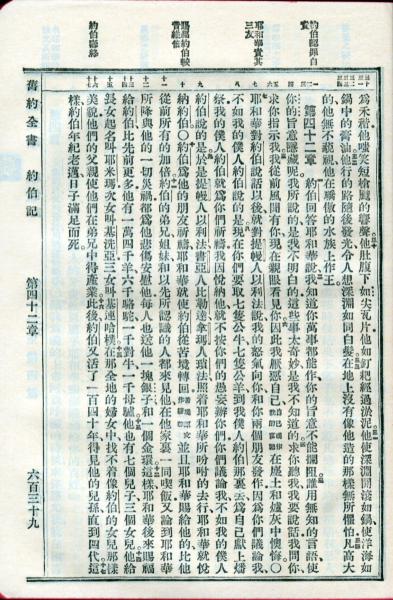 約伯認罪自責
耶和華責其三友
賜福約伯較昔綦倍
約伯壽終
為禾稭他嗤笑短槍颼的響聲他肚腹下如尖瓦片他如釘耙經過淤泥他使深淵開滾如鍋使洋海如
鍋中的膏油他行的路隨後發光令人想深淵如同白髮在地上沒有像他造的那樣無所懼怕凡高大
的他無不藐視他在驕傲的水族上作王
第四十二章 約伯回答耶和華說我知道你萬事都能作你的旨意不能攔阻誰用無知的言語使
你的旨意隱藏呢我所說的是我不明白的這些事太奇妙是我不知道的求你聽我我要說話我問你
求你指示我我從前風聞有你現在親眼看見你因此我厭惡自己在塵土和爐灰中懊悔○
耶和華對約伯說話以後就對提幔人以利法說我的怒氣向你和你兩個朋友發作因為你們議論我
不如我的僕人約伯說的是現在你們要取七隻公牛七隻公羊到我僕人約伯那裏去為自己獻上燔
祭我的僕人約伯就為你們祈禱我因悅納他就不按你們的愚妄辦你們你們議論我不如我的僕人
約伯說的是於是提幔人以利法書亞人比勒達拿瑪人瑣法照着耶和華所吩咐的去行耶和華就悅
納約伯○約伯為他的朋友祈禱耶和華就使約伯從苦境轉回並且耶和華賜給他的比他
從前所有的加倍約伯的弟兄姐妹和以先所認識的人都來見他在他家裏一同喫飯又論到耶和華
所降與他的一切災禍都為他悲傷安慰他每人也送他一塊銀子和一個金環這樣耶和華後來賜福
給約伯比先前更多他有一萬四千羊六千駱駝一千對牛一千母驢他也有七個兒子三個女兒他給
長女起名叫耶米瑪次女叫基洗亞三女叫基連哈樸在那全地的婦女中找不着像約伯的女兒那樣
美貌他們的父親使他們在弟兄中得產業此後約伯又活了一百四十年得見他的兒孫直到四代這
樣約伯年紀老邁日子滿足而死
舊約全書 約伯記 第四十二章 六百三十九